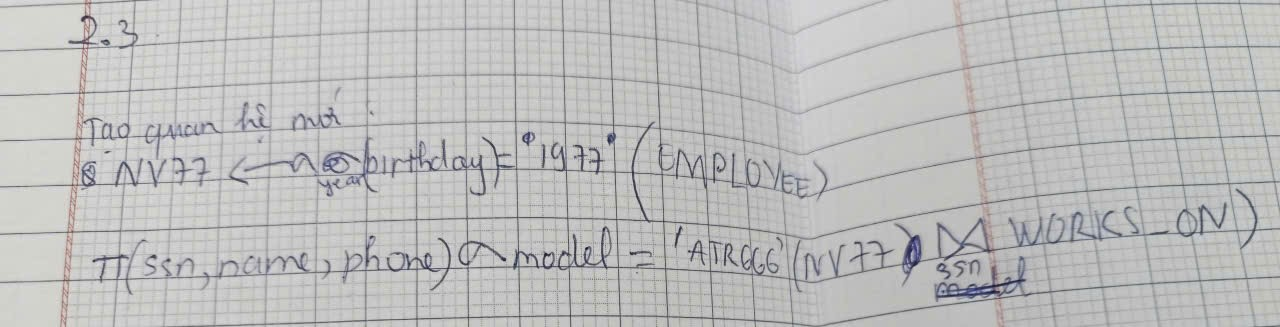 2.3
Tạo quan hệ mới:
NV77 ← σ year(birthday) = '1977' (EMPLOYEE)
π(ssn, name, phone) σ model = 'ATR666' (NV77 ⋈ ssn WORKS_ON)